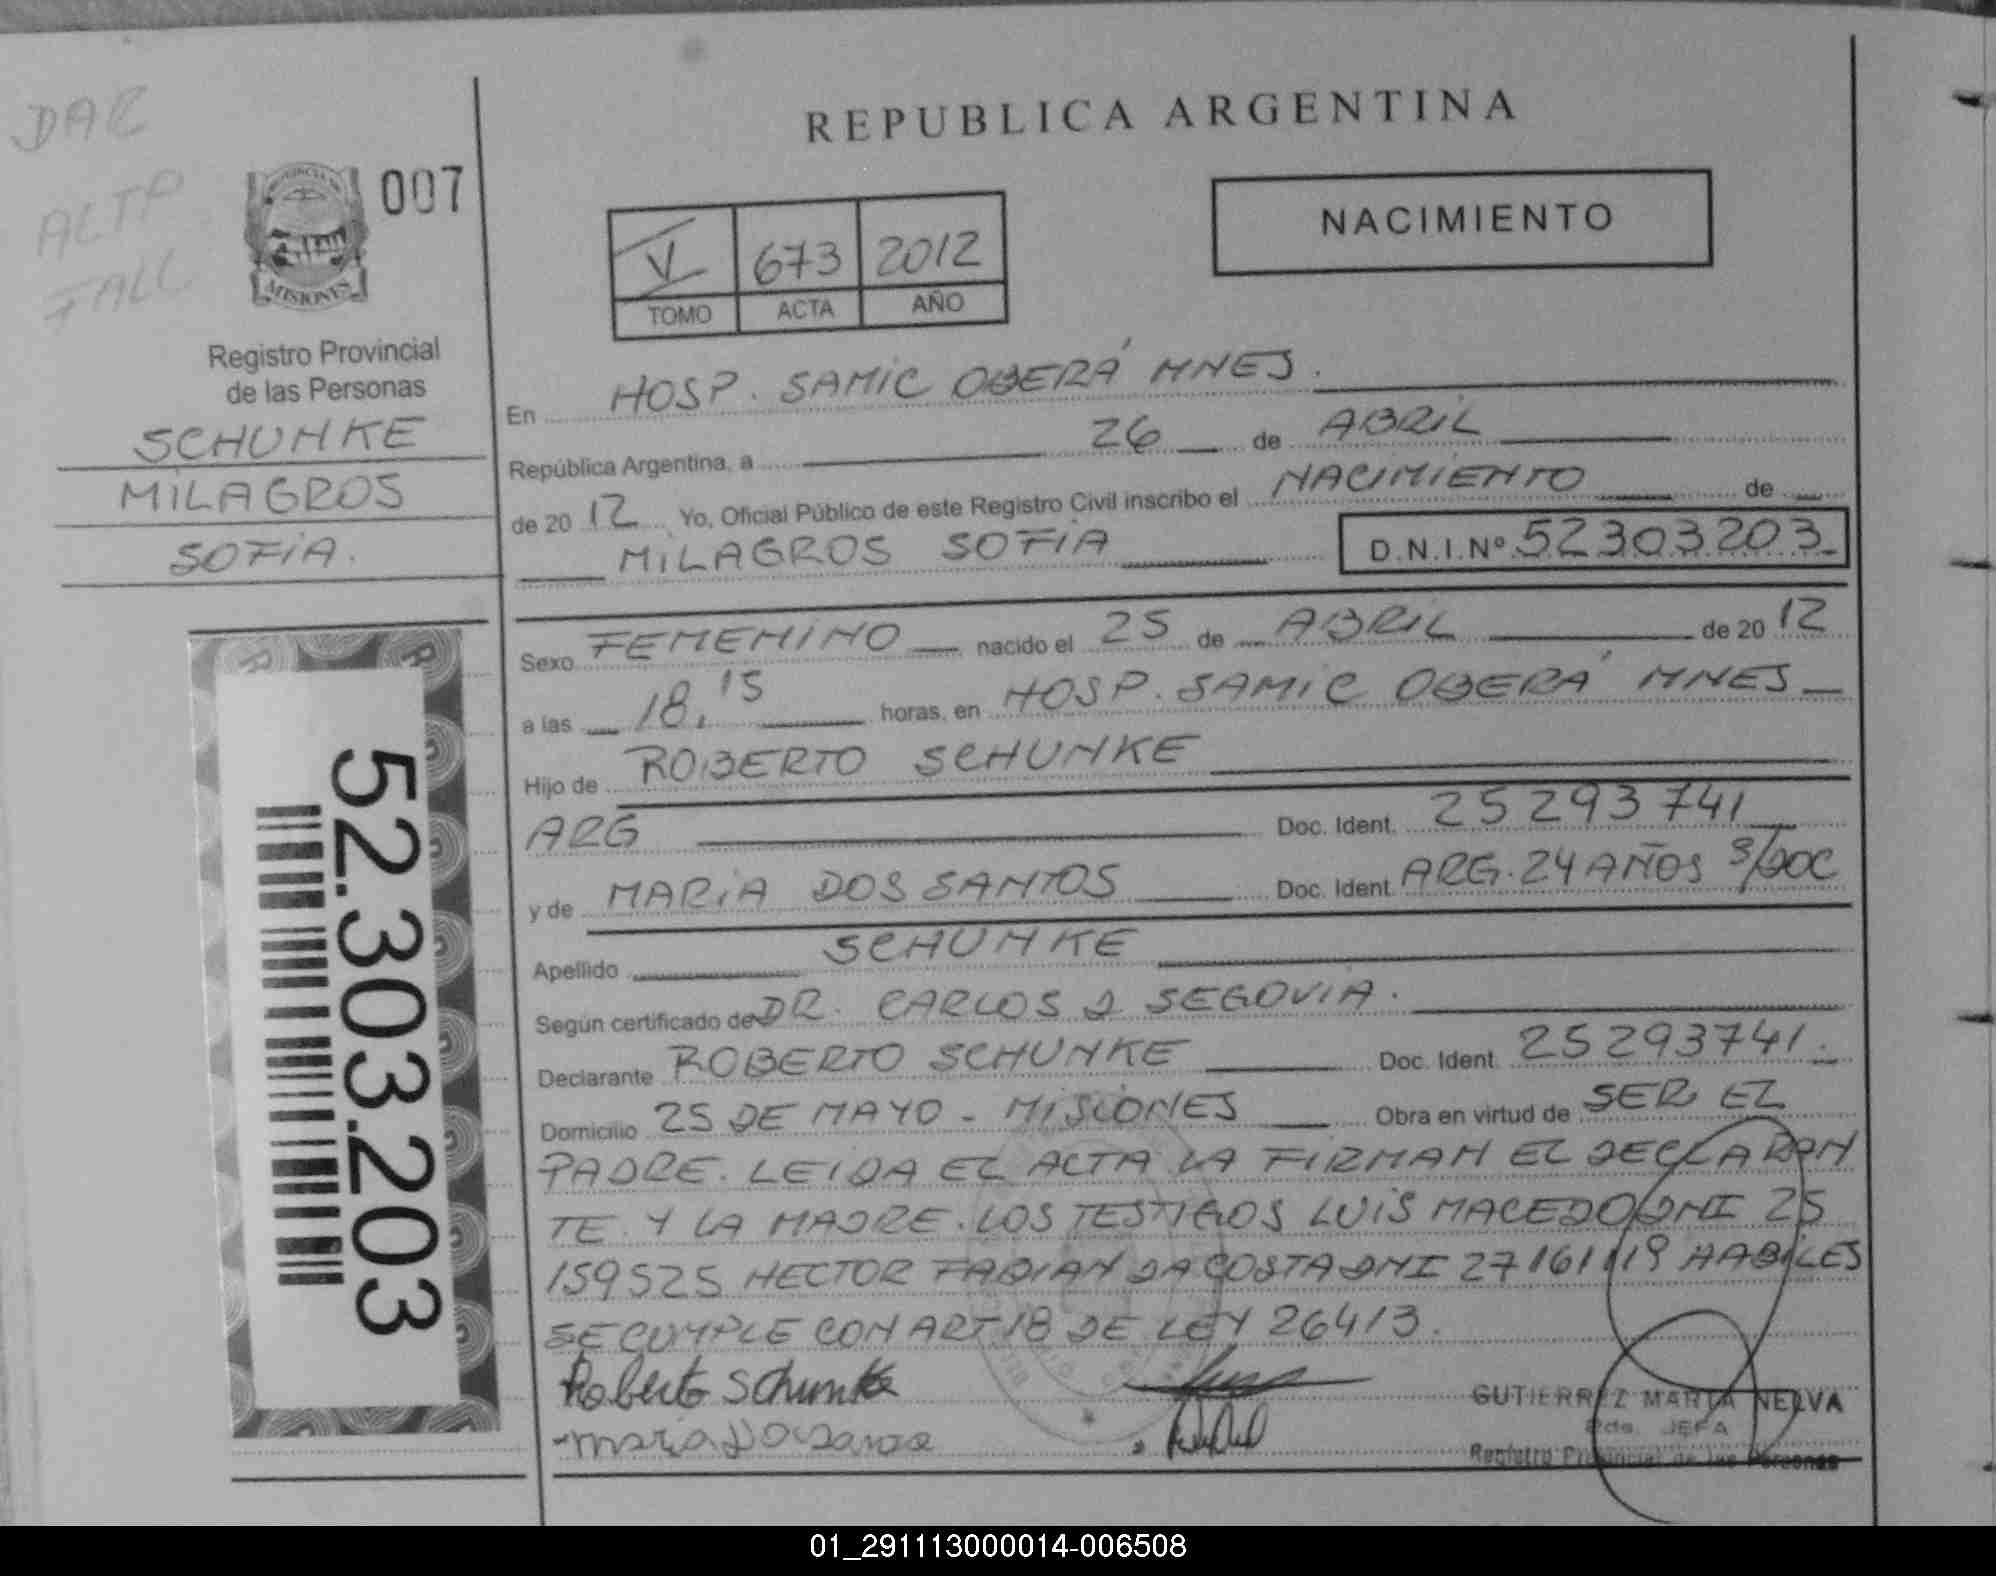 DAR
ALTP
FALL
007
PROVINCIA DE
MISIONES
Registro Provincial
de las Personas
SCHUNKE
MILAGROS
SOFIA.
52.303.203
REPUBLICA ARGENTINA
V 673 2012
TOMO ACTA AÑO
NACIMIENTO
En HOSP. SAMIC OBERÁ MNES.
República Argentina, a 26 de ABRIL
de 20 12 Yo, Oficial Público de este Registro Civil inscribo el NACIMIENTO de
MILAGROS SOFIA D.N.I.Nº 52303203
Sexo FEMENINO nacido el 25 de ABRIL de 20 12
a las 18,15 horas, en HOSP. SAMIC OBERÁ MNES
Hijo de ROBERTO SCHUNKE
ARG Doc. Ident. 25293741
y de MARIA DOS SANTOS Doc. Ident. ARG. 24 AÑOS S/DOC
Apellido SCHUNKE
Según certificado de DR. CARLOS J SEGOVIA.
Declarante ROBERTO SCHUNKE Doc. Ident. 25293741.
Domicilio 25 DE MAYO - MISIONES Obra en virtud de SER EL
PADRE. LEIDA EL ACTA LA FIRMAN EL DECLARAN
TE Y LA MADRE. LOS TESTIGOS LUIS MACEDO DNI 25
159525 HECTOR FABIAN DACOSTA DNI 27161119 HABILES
SE CUMPLE CON ART 18 DE LEY 26413.
Roberto Schunke
GUTIERREZ MARTA NELVA
JEFA
Registro Provincial de las Personas
01_291113000014-006508